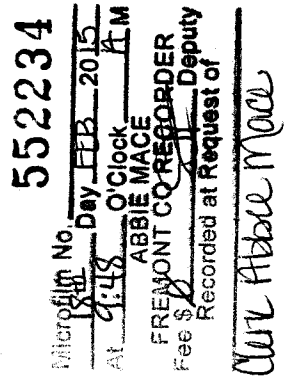 552234
Microfilm No.
18th Day FEB 2015
At 9:48 O'Clock A M
ABBIE MACE
FREMONT CO RECORDER
Fee $ Deputy
Recorded at Request of
Clerk Abbie Mace